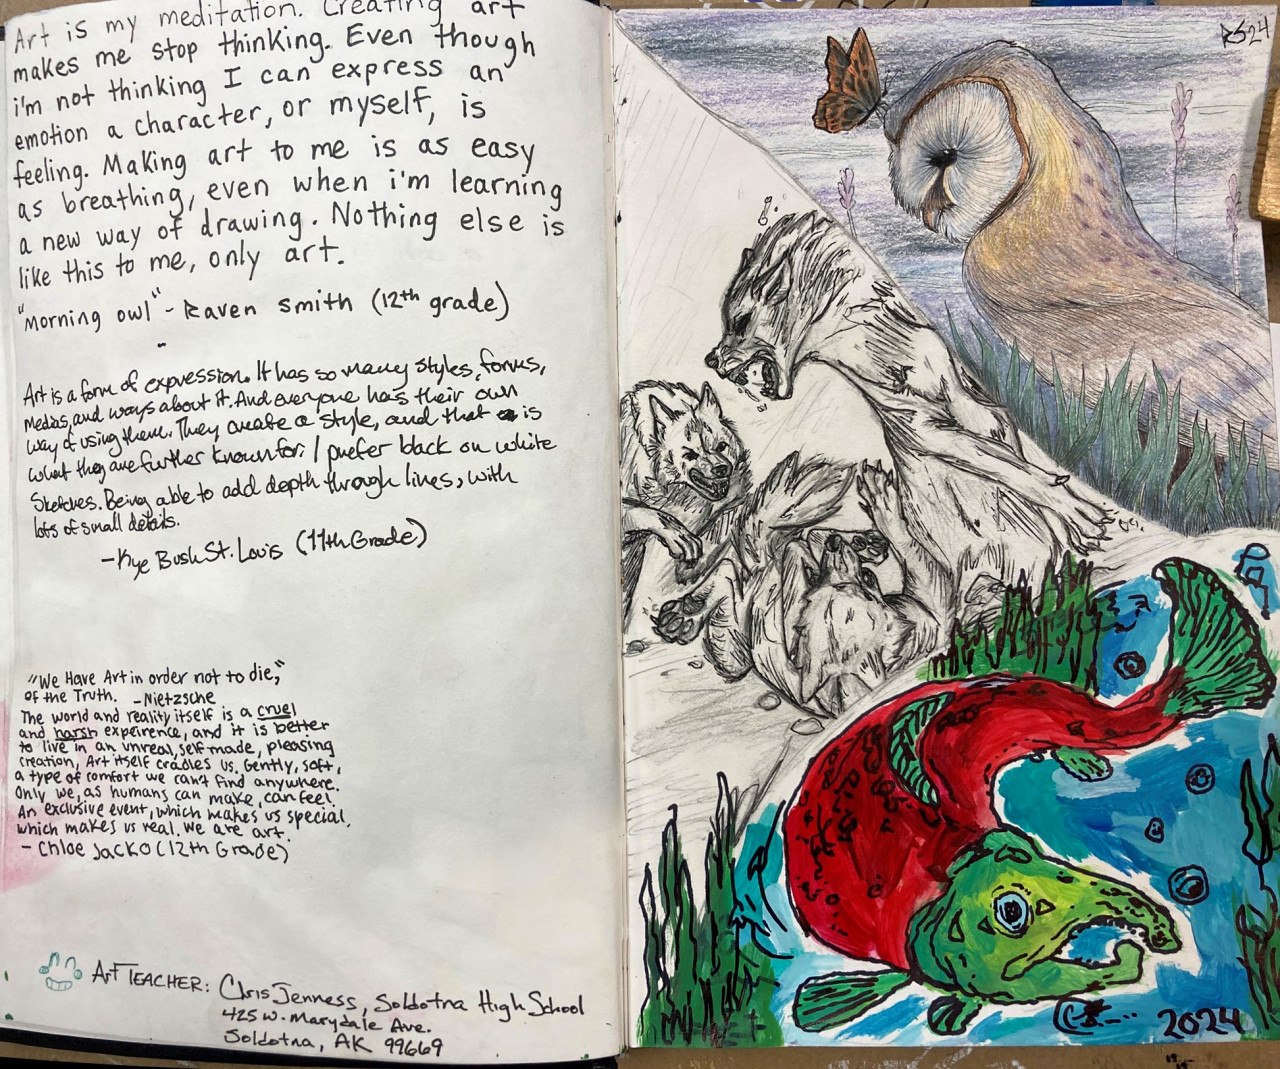 Art is my meditation. Creating art
makes me stop thinking. Even though
i'm not thinking I can express an
emotion a character, or myself, is
feeling. Making art to me is as easy
as breathing, even when i'm learning
a new way of drawing. Nothing else is
like this to me, only art.
"Morning owl" - Raven Smith (12th grade)
Art is a form of expression. It has so many styles, forms,
medias, and ways about it. And everyone has their own
way of using them. They create a style, and that is
what they are further known for. I prefer black on white
sketches. Being able to add depth through lines, with
lots of small details.
- Kye Bush St. Louis (11th Grade)
"We Have Art in order not to die,"
of the Truth. - Nietzsche
The world and reality itself is a cruel
and harsh expeirence, and it is better
to live in an unreal, self made, pleasing
creation, Art itself cradles us. Gently, soft,
a type of comfort we can't find anywhere.
Only we, as humans can make, can feel.
An exclusive event, which makes us special,
which makes us real. We are art.
- Chloe Jacko (12th Grade)
Art Teacher: Chris Jenness, Soldotna High School
425 W. Marydale Ave.
Soldotna, AK 99669
RS24
2024